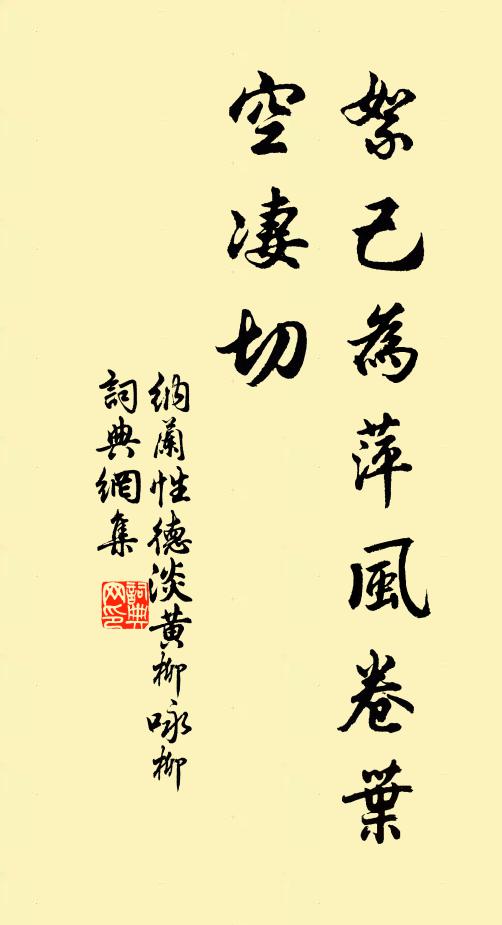 絮已為萍風卷葉
空凄切
納蘭性德淡黃柳咏柳
詞典網集
詞典
网印